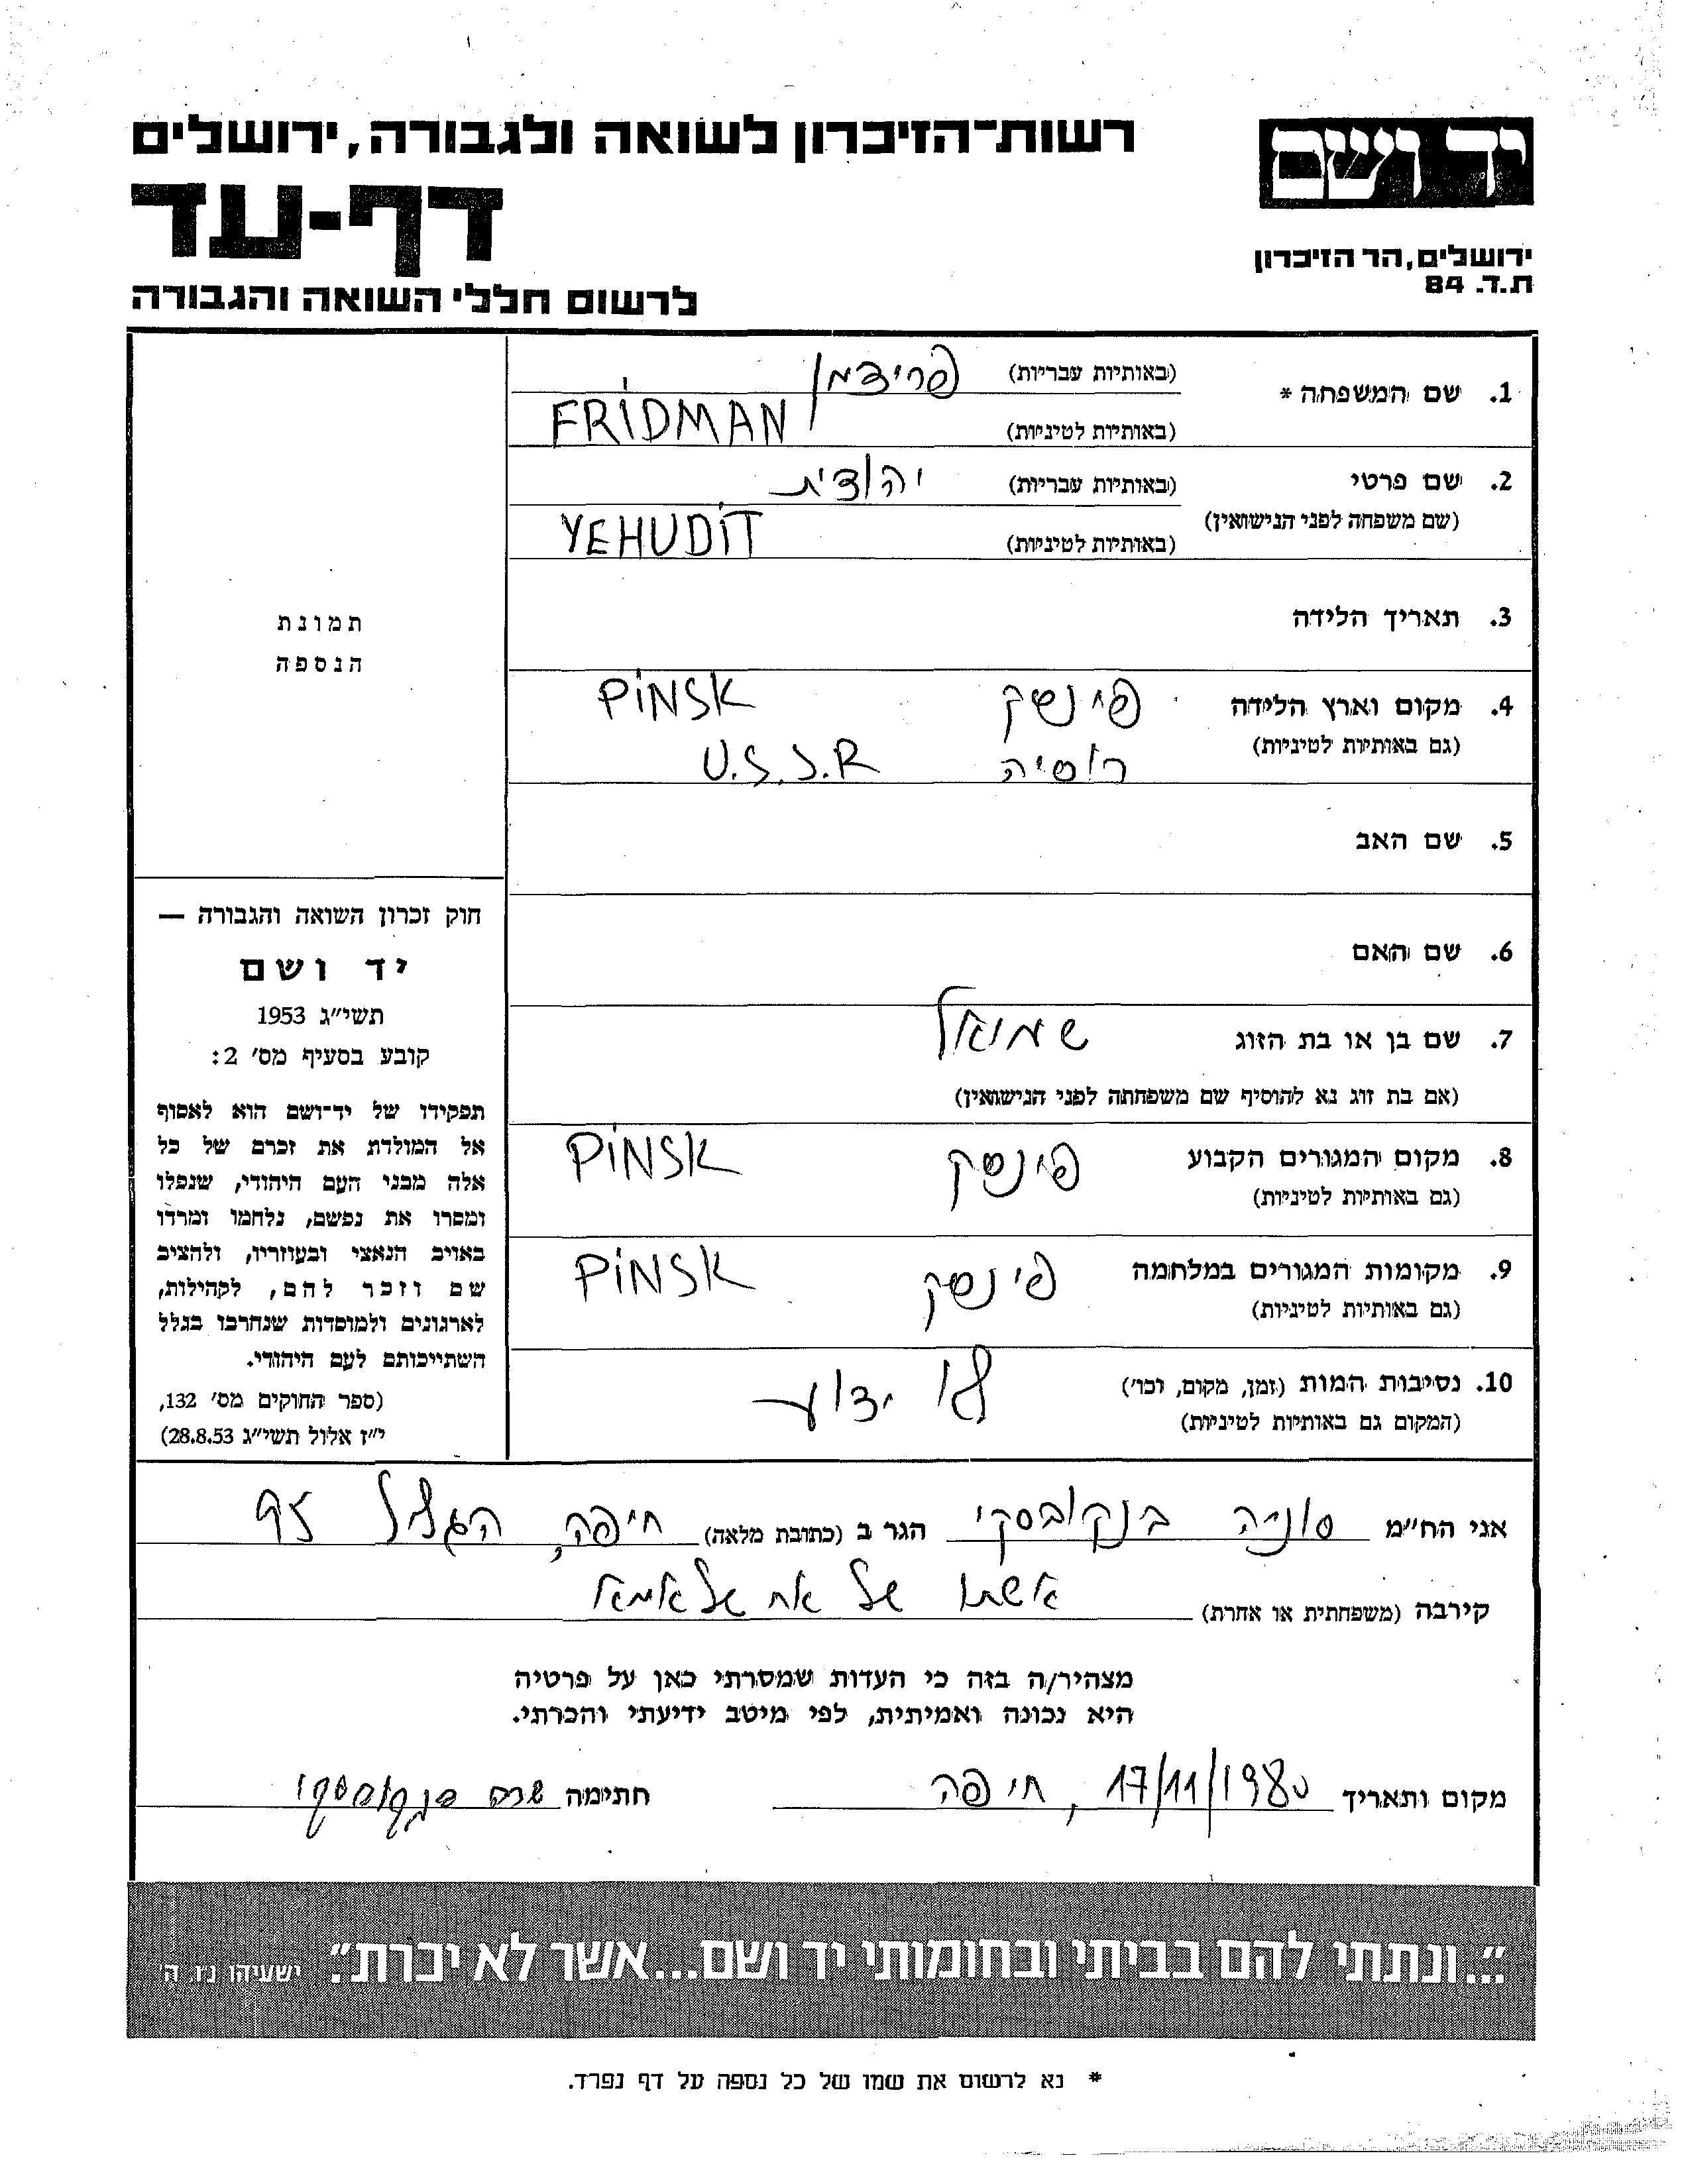 רשות־הזיכרון לשואה ולגבורה, ירושלים
יד ושם
דף-עד
ירושלים, הר הזיכרון
ת.ד. 84
לרשום חללי השואה והגבורה
1. שם המשפחה * (באותיות עבריות) פרידמן
(באותיות לטיניות) FRIDMAN
2. שם פרטי (באותיות עבריות) יהודית
(שם משפחה לפני הנישואין)
(באותיות לטיניות) YEHUDIT
3. תאריך הלידה
4. מקום וארץ הלידה פינסק PINSK
(גם באותיות לטיניות) רוסיה U.S.S.R
5. שם האב
6. שם האם
7. שם בן או בת הזוג שמואל
(אם בת זוג נא להוסיף שם משפחתה לפני הנישואין)
8. מקום המגורים הקבוע פינסק PINSK
(גם באותיות לטיניות)
9. מקומות המגורים במלחמה פינסק PINSK
(גם באותיות לטיניות)
10. נסיבות המות (זמן, מקום, וכו') לא ידוע
(המקום גם באותיות לטיניות)
תמונת
הנספה
חוק זכרון השואה והגבורה —
יד ושם
תשי״ג 1953
קובע בסעיף מס' 2:
תפקידו של יד־ושם הוא לאסוף
אל המולדת את זכרם של כל
אלה מבני העם היהודי, שנפלו
ומסרו את נפשם, נלחמו ומרדו
באויב הנאצי ובעוזריו, ולהציב
שם וזכר להם, לקהילות,
לארגונים ולמוסדות שנחרבו בגלל
השתייכותם לעם היהודי.
(ספר החוקים מס' 132,
י״ז אלול תשי״ג 28.8.53)
אני הח״מ סוניה בנקובסקי הגר ב (כתובת מלאה) חיפה, הגליל 95
קירבה (משפחתית או אחרת) אשתו של אח של אמא
מצהיר/ה בזה כי העדות שמסרתי כאן על פרטיה
היא נכונה ואמיתית, לפי מיטב ידיעתי והכרתי.
מקום ותאריך 17/11/1980, חיפה חתימה בנקובסקי
"...ונתתי להם בביתי ובחומותי יד ושם...אשר לא יכרת". ישעיהו נ״ו, ה'
* נא לרשום את שמו של כל נספה על דף נפרד.